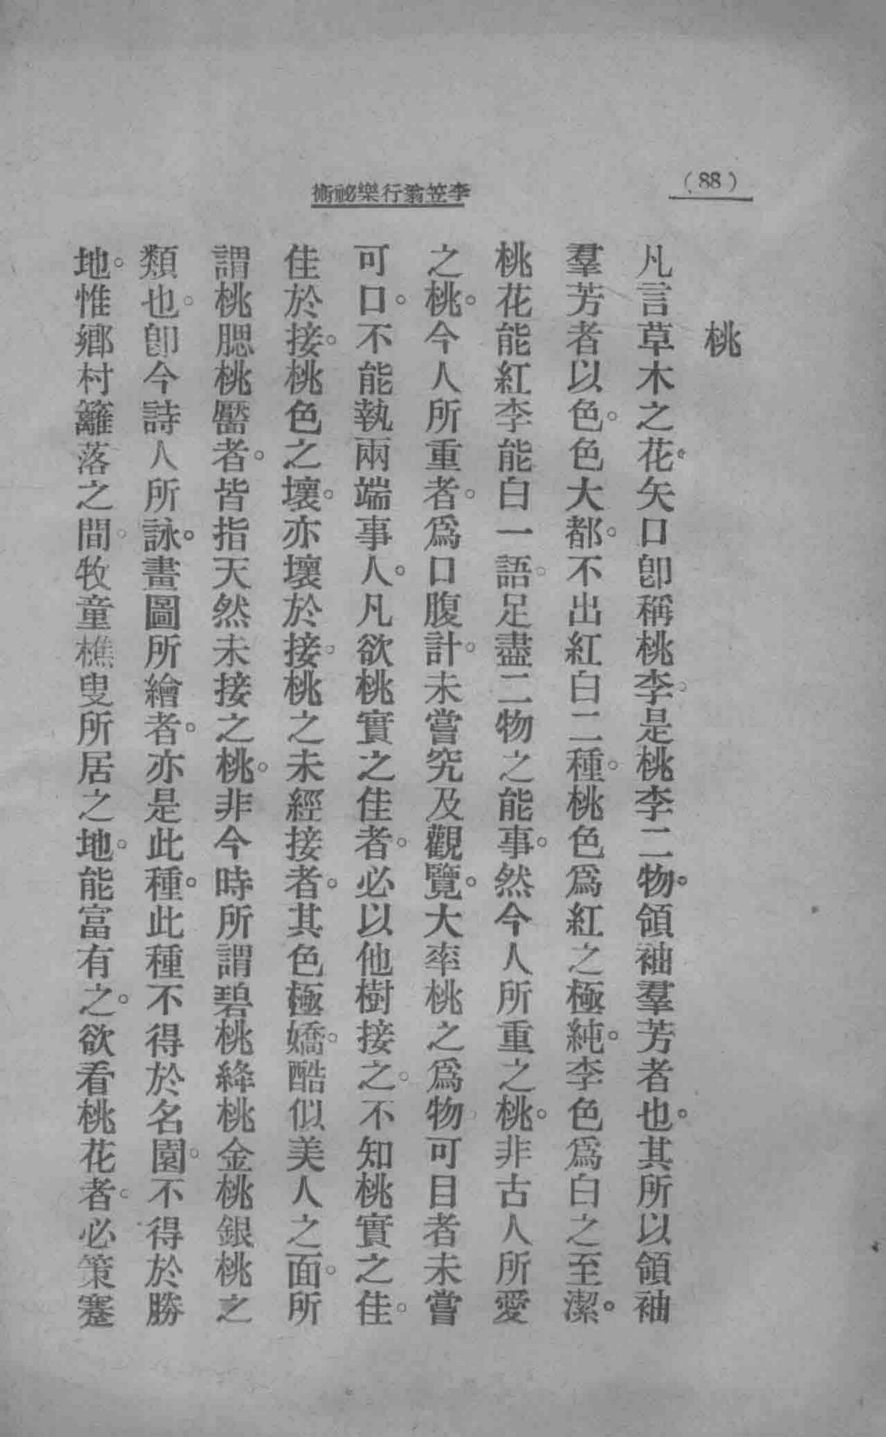 (88)
李笠翁行樂祕術
桃
凡言草木之花。矢口卽稱桃李。是桃李二物。領袖羣芳者也。其所以領袖
羣芳者以色。色大都。不出紅白二種。桃色爲紅之極純。李色爲白之至潔。
桃花能紅李能白一語。足盡二物之能事。然今人所重之桃。非古人所愛
之桃。今人所重者。爲口腹計。未嘗究及觀覽。大率桃之爲物。可目者未嘗
可口。不能執兩端事人。凡欲桃實之佳者。必以他樹接之。不知桃實之佳。
佳於接。桃色之壞。亦壞於接。桃之未經接者。其色極嬌。酷似美人之面。所
謂桃腮桃靨者。皆指天然未接之桃。非今時所謂碧桃絳桃金桃銀桃之
類也。卽今詩人所詠。畫圖所繪者。亦是此種。此種不得於名園。不得於勝
地。惟鄉村籬落之間。牧童樵叟所居之地。能富有之。欲看桃花者。必策蹇